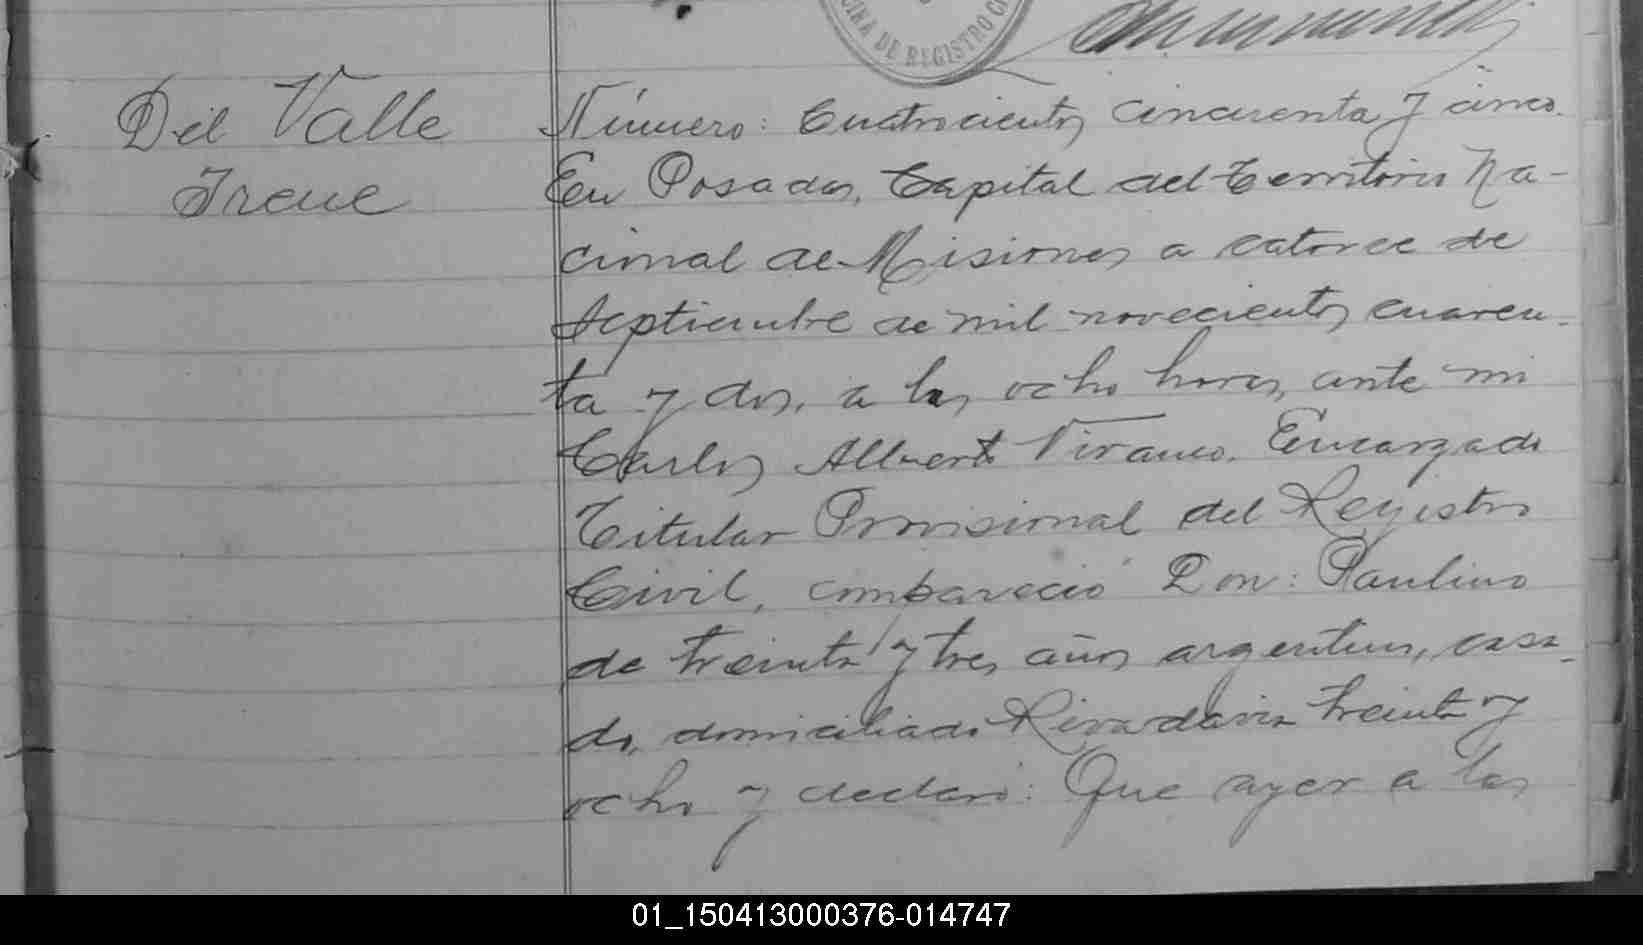 CINA DE REGISTRO CI
Del Valle
Irene
Número: Cuatrocientos cincuenta y cinco.
En Posadas, Capital del Territorio Na-
cional de Misiones a catorce de
Septiembre de mil novecientos cuaren-
ta y dos, a las ocho horas, ante mi
Carlos Alberto Encargado
Titular Provisional del Registro
Civil, compareció Don: Paulino
de treinta y tres años argentino, casa-
do, domiciliado Rivadavia treinta y
ocho y declaró: Que ayer a las
01_150413000376-014747